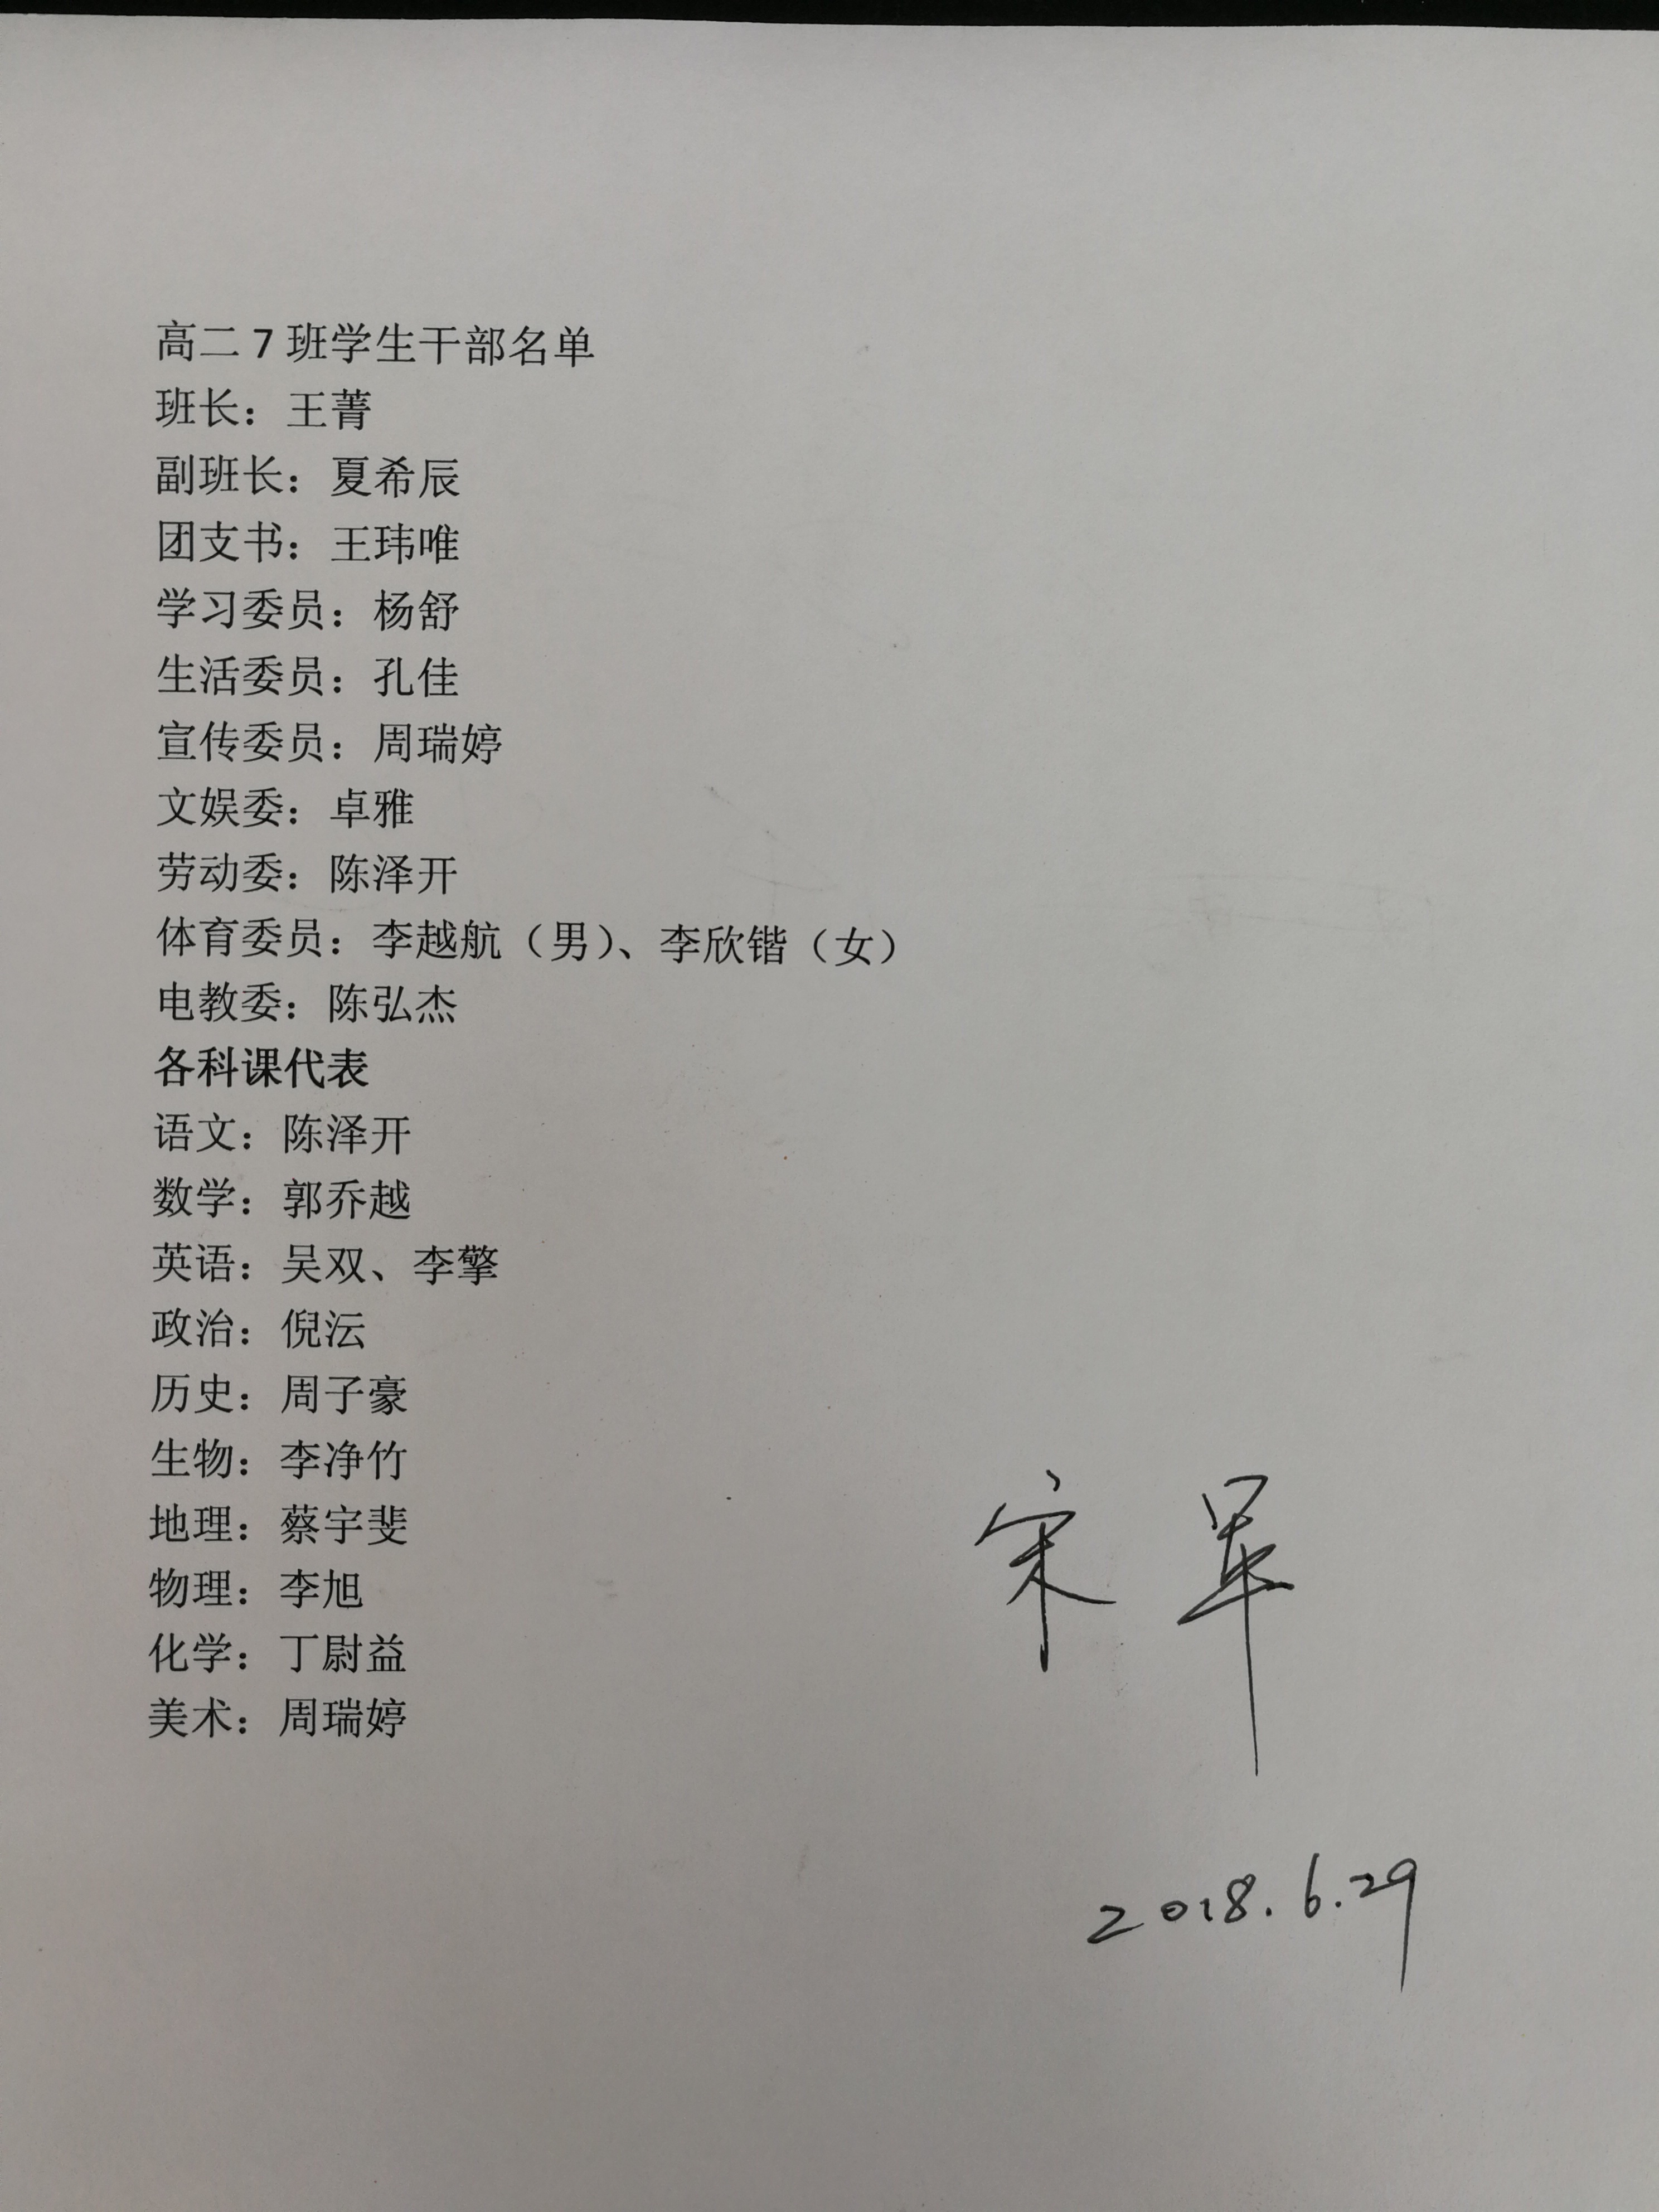 高二7班学生干部名单
班长：王菁
副班长：夏希辰
团支书：王玮唯
学习委员：杨舒
生活委员：孔佳
宣传委员：周瑞婷
文娱委：卓雅
劳动委：陈泽开
体育委员：李越航（男）、李欣锴（女）
电教委：陈弘杰
各科课代表
语文：陈泽开
数学：郭乔越
英语：吴双、李擎
政治：倪沄
历史：周子豪
生物：李净竹
地理：蔡宇斐
物理：李旭
化学：丁尉益
美术：周瑞婷
宋军
2018.6.29